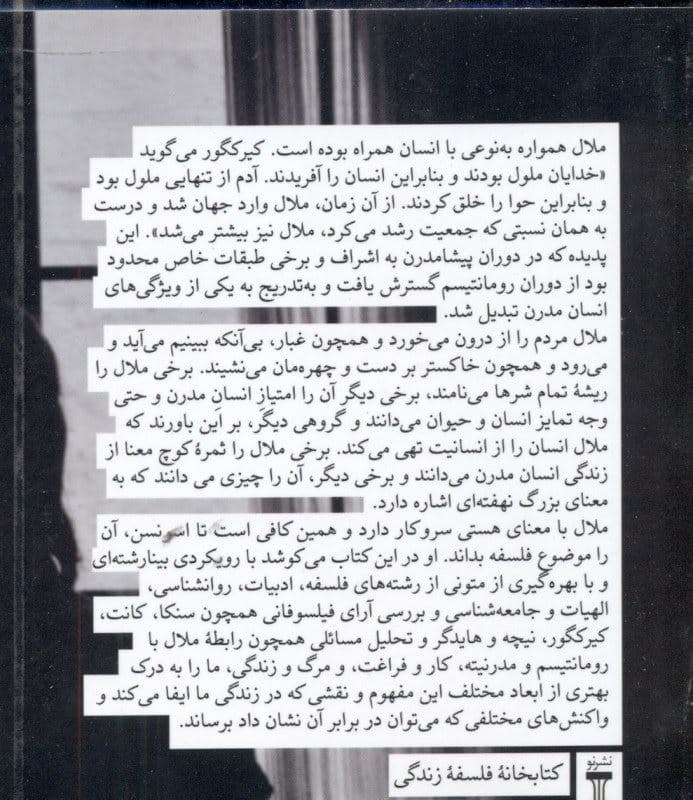 ملال همواره به‌نوعی با انسان همراه بوده است. کیرکگور می‌گوید
«خدایان ملول بودند و بنابراین انسان را آفریدند. آدم از تنهایی ملول بود
و بنابراین حوا را خلق کردند. از آن زمان، ملال وارد جهان شد و درست
به همان نسبتی که جمعیت رشد می‌کرد، ملال نیز بیشتر می‌شد». این
پدیده که در دوران پیشامدرن به اشراف و برخی طبقات خاص محدود
بود از دوران رومانتیسم گسترش یافت و به‌تدریج به یکی از ویژگی‌های
انسان مدرن تبدیل شد.
ملال مردم را از درون می‌خورد و همچون غبار، بی‌آنکه ببینیم می‌آید و
می‌رود و همچون خاکستر بر دست و چهره‌مان می‌نشیند. برخی ملال را
ریشهٔ تمام شرها می‌نامند، برخی دیگر آن را امتیازِ انسانِ مدرن و حتی
وجه تمایز انسان و حیوان می‌دانند و گروهی دیگر، بر این باورند که
ملال انسان را از انسانیت تهی می‌کند. برخی ملال را ثمرهٔ کوچ معنا از
زندگی انسان مدرن می‌دانند و برخی دیگر، آن را چیزی می دانند که به
معنای بزرگ نهفته‌ای اشاره دارد.
ملال با معنای هستی سروکار دارد و همین کافی است تا اسونسن، آن
را موضوع فلسفه بداند. او در این کتاب می‌کوشد با رویکردی بینارشته‌ای
و با بهره‌گیری از متونی از رشته‌های فلسفه، ادبیات، روانشناسی،
الهیات و جامعه‌شناسی و بررسی آرای فیلسوفانی همچون سنکا، کانت،
کیرکگور، نیچه و هایدگر و تحلیل مسائلی همچون رابطهٔ ملال با
رومانتیسم و مدرنیته، کار و فراغت، و مرگ و زندگی، ما را به درک
بهتری از ابعاد مختلف این مفهوم و نقشی که در زندگی ما ایفا می‌کند و
واکنش‌های مختلفی که می‌توان در برابر آن نشان داد برساند.
نشرنو
کتابخانهٔ فلسفهٔ زندگی